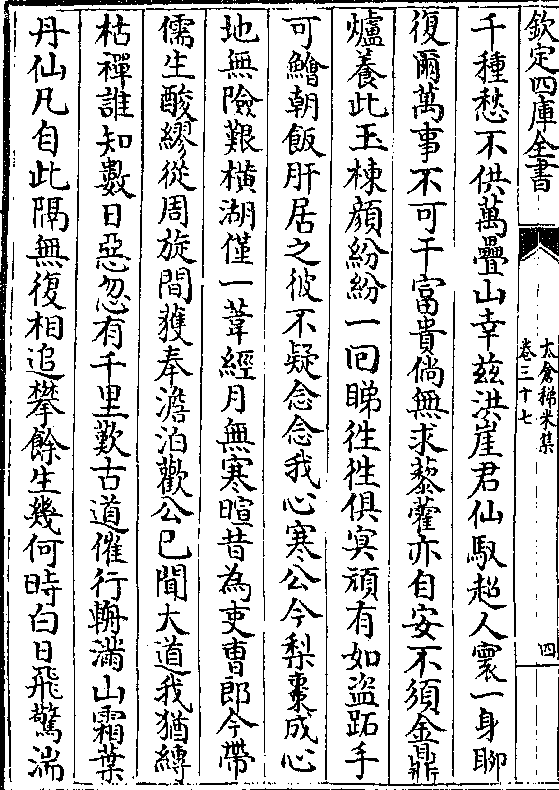 欽定四庫全書
太倉稊米集
卷三十七
四
千種愁不供萬疊山幸兹洪崖君仙馭超人寰一身聊
復爾萬事不可干富貴倘無求藜藿亦自安不須金鼎
爐養此玉棟顔紛紛一回睇徃徃俱冥頑有如盜跖手
可鱠朝飯肝居之彼不疑念念我心寒公今梨棗成心
地無險艱横湖僅一葦經月無寒暄昔為吏曹郎今帶
儒生酸繆從周旋間獲奉澹泊歡公已聞大道我猶縛
枯禪誰知數日惡忽有千里歎古道催行輈滿山霜葉
丹仙凡自此隔無復相追攀餘生幾何時白日飛驚湍